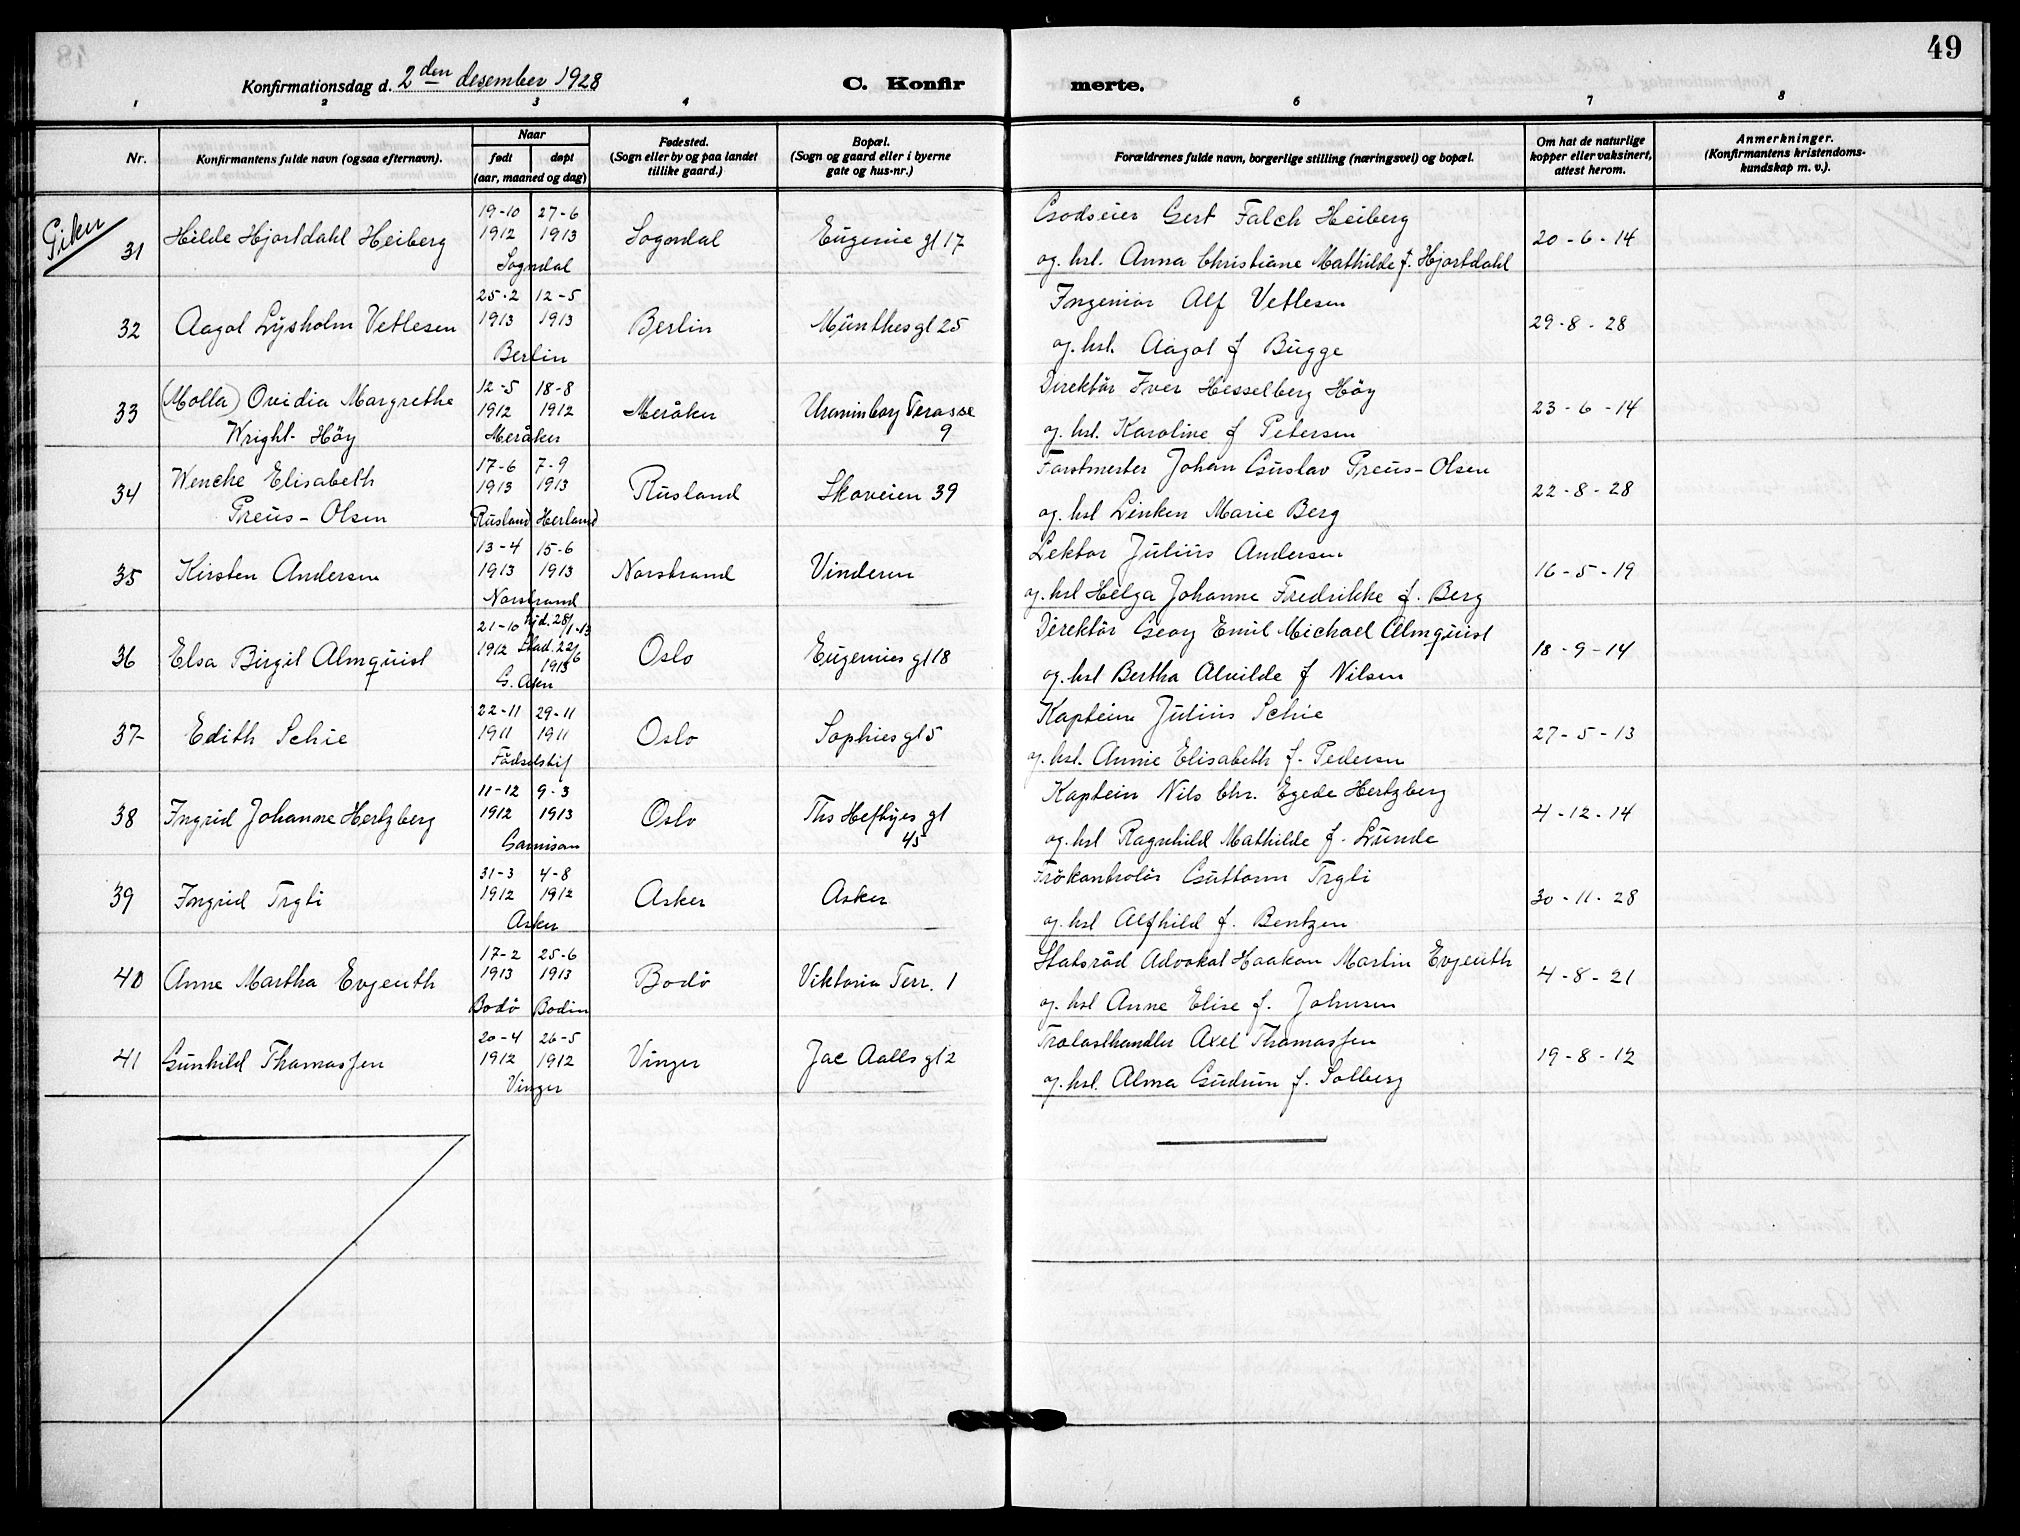 49
Konfirmationsdag d. 2den desember 1928 C. Konfir merte.
1 2 3 4 5 6 7 8
Nr. Konfirmantens fulde navn (ogsaa efternavn). Naar født døpt (aar, maaned og dag) Fødested. (Sogn eller by og paa landet tillike gaard.) Bopæl. (Sogn og gaard eller i byerne gate og hus-nr.) Forældrenes fulde navn, borgerlige stilling (næringsvei) og bopæl. Om hat de naturlige kopper eller vaksinert, attest herom. Anmerkninger. (Konfirmantens kristendoms-kundskap m. v.).
Piker
31 Hilde Hjortdahl Heiberg 19-10 1912 27-6 1913 Sogndal Sogndal Eugenie gt 17 Godseier Gert Falch Heiberg
og. hst. Anna Christiane Mathilde f. Hjortdahl 20-6-14
32 Aagot Lysholm Vetlesen 25-2 1913 12-5 1913 Berlin Berlin Münthesgt 25 Ingeniør Alf Vetlesen
og. hst. Aagot f Bugge 29-8-28
33 (Molla) Ovidia Margrethe
Wright-Höy 12-5 1912 18-8 1912 Meråker Meråker Uraninborg Terasse 9 Direktör Iver Hesselberg Höy
og. hst. Karoline f Petersen 23-6-14
34 Wenche Elisabeth
Preus-Olsen 17-6 1913 7-9 1913 Rusland Herland Rusland Skoveien 39 Forstmester Johan Gustav Preus-Olsen
og. hst Linken Marie Berg 22-8-28
35 Kirsten Andersen 13-4 1913 15-6 1913 Norstrand Norstrand Vinderen Lektor Julius Andersen
og. hst Helga Johanne Fredrikke f. Berg 16-5-19
36 Elsa Birgit Almquist 21-10 1912 hjd. 28/1-13 Stad. 22/6 1913 G. Aker Oslo Eugenies gt 18 Direktör Georg Emil Michael Almquist
og. hst Bertha Alvilde f Nilsen 18-9-14
37 Edith Schie 22-11 1911 29-11 1911 Födselstif Oslo Sophies gt 5 Kaptein Julius Schie
og. hst. Annie Elisabeth f. Pedersen 27-5-13
38 Ingrid Johanne Hertzberg 11-12 1912 9-3 1913 Garnison Oslo Ths Heftyes gt 45 Kaptein Nils Chr. Egede Hertzberg
og. hst Ragnhild Mathilde f. Lunde 4-12-14
39 Ingrid Trgti 31-3 1912 4-8 1912 Asker Asker Asker Frökontrolör Guttorm Trgti
og. hst Alfhild f. Bentzen 30-11-28
40 Anne Martha Evjenth 17-2 1913 25-6 1913 Bodö Bodin Bodö Viktoria Terr. 1 Statsråd Advokat Haakon Martin Evjenth
og. hst Anne Elise f. Johnsen 4-8-21
41 Gunhild Thomassen 20-4 1912 26-5 1912 Vinger Vinger Jac Aalls gt 2 Trelasthandler Axel Thomassen
og. hst. Alma Gudrun f. Solberg 19-8-12